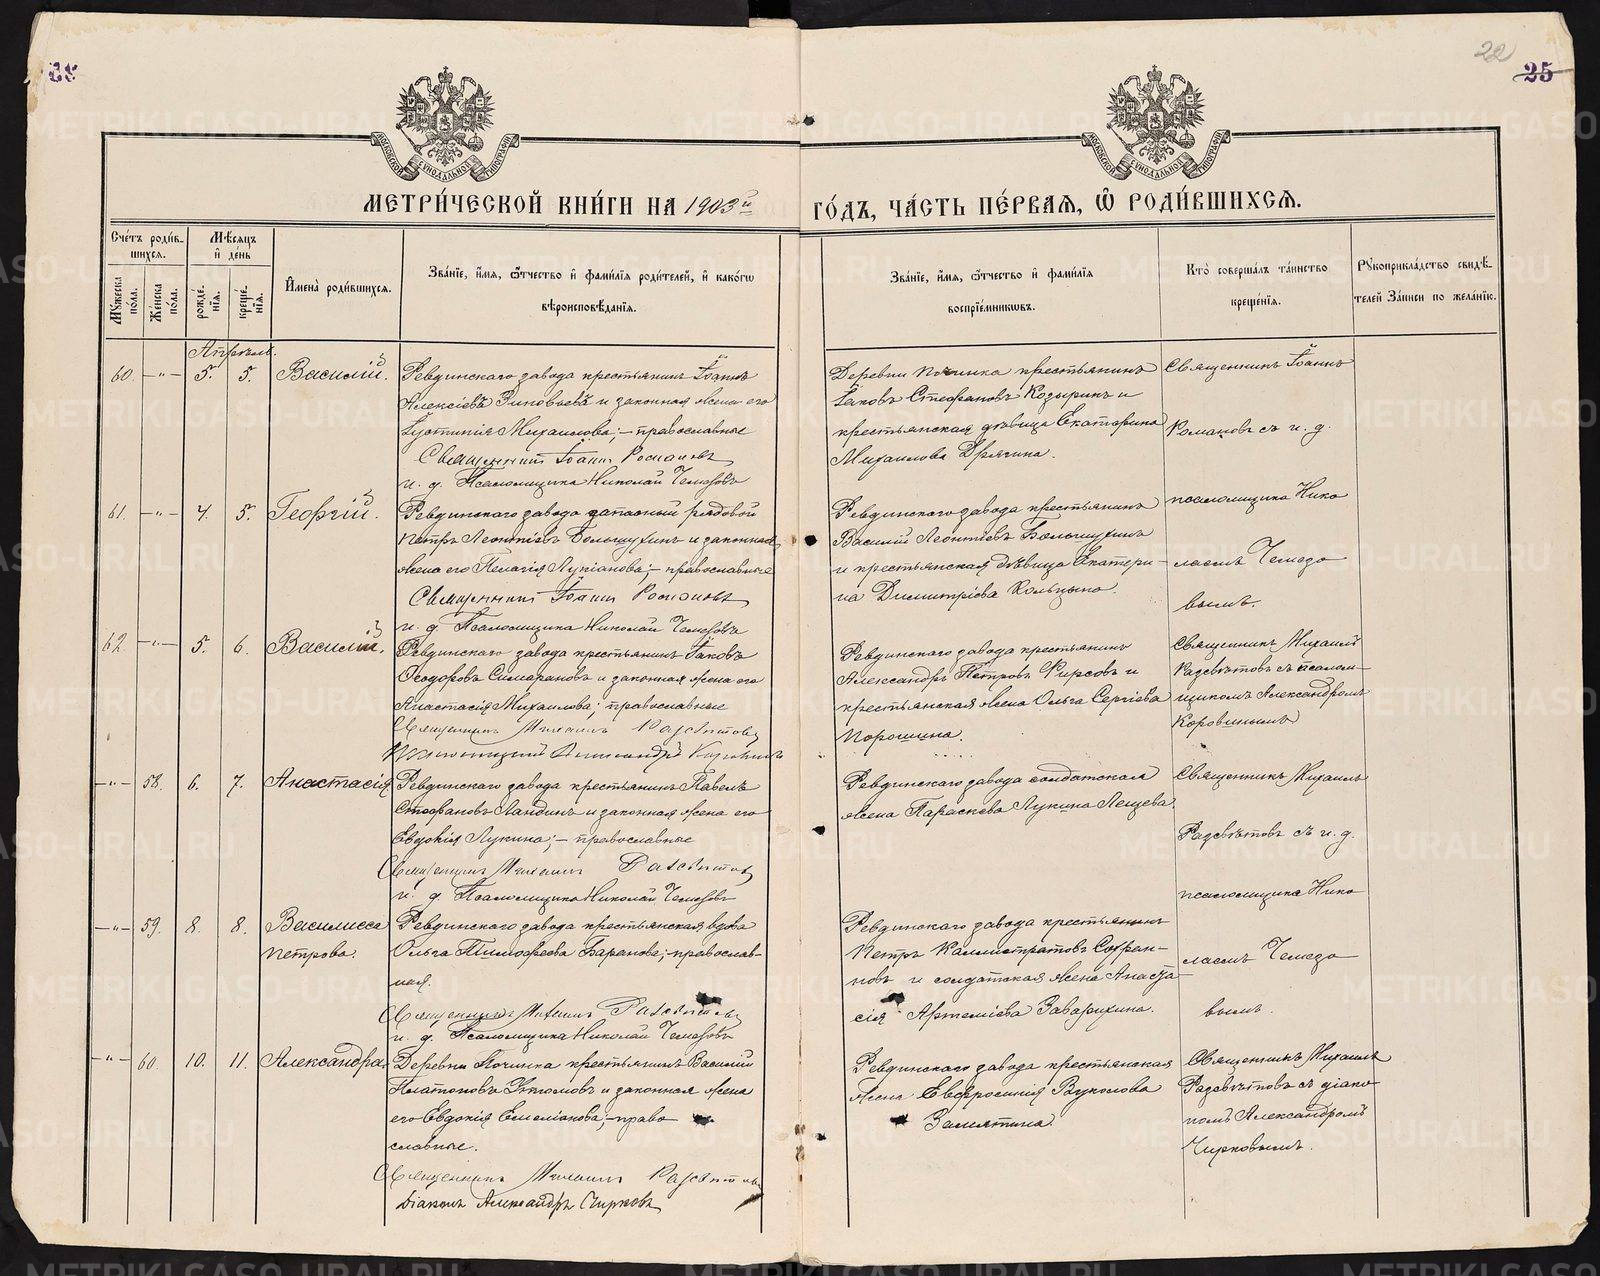 22
25
МЕТРИ́ЧЕСКОЙ КНИ́ГИ НА 1903й ГО́ДЪ, ЧА́СТЬ ПЕ́РВАЯ, Ѿ РОДИ́ВШИХСЯ.
Сче́тъ роди́вшихся.
Мѣ́сяцъ и де́нь
Му́жеска пола.
Же́нска пола.
рожде́нія.
креще́нія.
Имена̀ роди́вшихся.
Зва́ніе, и́мя, ѻ́тчество и фами́лія роди́телей, и како́гѡ
вѣроисповѣ́данія.
Зва́ніе, и́мя, ѻ́тчество и фами́лія
воспрїе́мникѡвъ.
Кто̀ соверша́лъ та́инство
креще́нія.
Рꙋкоприкла́дство свидѣ́-
телей за́писи по жела́нію.
Апрѣль.
60. —"— 5. 5. Василій.
Ревдинскаго завода крестьянинъ Іоаннъ
Алексіевъ Зиновьевъ и законная жена его
Іустинія Михаилова; – православные
Священникъ Іоаннъ Романовъ
и. д. Псаломщика Николай Чемезовъ
Деревни Починка крестьянинъ
Іаковъ Стефановъ Козыринъ и
крестьянская дѣвица Екатерина
Михаилова Дрягина.
Священникъ Іоаннъ
Романовъ съ и. д.
псаломщика Нико
лаемъ Чемезо
вымъ.
61. —"— 4. 5. Георгій.
Ревдинскаго завода запасный рядовой
Петръ Леонтіевъ Большухинъ и законная
жена его Пелагія Лукіанова; – православные
Священникъ Іоаннъ Романовъ
и. д. Псаломщика Николай Чемезовъ
Ревдинскаго завода крестьянинъ
Василій Леонтіевъ Большухинъ
и крестьянская дѣвица Екатери-
на Димитріева Кольцына.
62. —"— 5. 6. Василій.
Ревдинскаго завода крестьянинъ Іаковъ
Ѳеодоровъ Симарановъ и законная жена его
Анастасія Михаилова; православные
Священникъ Михаилъ Разсвѣтовъ
Псаломщикъ Александръ Коровинъ
Ревдинскаго завода крестьянинъ
Александръ Петровъ Фирсовъ и
крестьянская жена Ольга Сергіева
Порошина.
Священникъ Михаилъ
Разсвѣтовъ съ псалом-
щикомъ Александромъ
Коровинымъ
—"— 58. 6. 7. Анастасія
Ревдинскаго завода крестьянинъ Павелъ
Стефановъ Ландинъ и законная жена его
Евдокія Лукина; – православные
Священникъ Михаилъ Разсвѣтовъ
и. д. Псаломщика Николай Чемезовъ
Ревдинскаго завода солдатская
жена Параскева Лукина Лещева.
Священникъ Михаилъ
Разсвѣтовъ съ и. д.
псаломщика Нико
лаемъ Чемезо
вымъ.
—"— 59. 8. 8. Василисса
Петрова.
Ревдинскаго завода крестьянская вдова
Ольга Тимофеева Баранова; – православ-
ная.
Священникъ Михаилъ Разсвѣтовъ
и. д. Псаломщика Николай Чемезовъ
Ревдинскаго завода крестьянинъ
Петръ Каллистратовъ Софран-
новъ и солдатская жена Анаста-
сія Артеміева Заварихина.
—"— 60. 10. 11. Александра.
Деревни Починка крестьянинъ Василій
Платоновъ Утюмовъ и законная жена
его Евдокія Емеліанова; – право
славные.
Священникъ Михаилъ Разсвѣтовъ
Діаконъ Александръ Чирковъ
Ревдинскаго завода крестьянская
жена Евфросинія Вуколова
Замятина
Священникъ Михаилъ
Разсвѣтовъ съ діако
номъ Александромъ
Чирковымъ.
METRIKI.GASO-URAL.RU